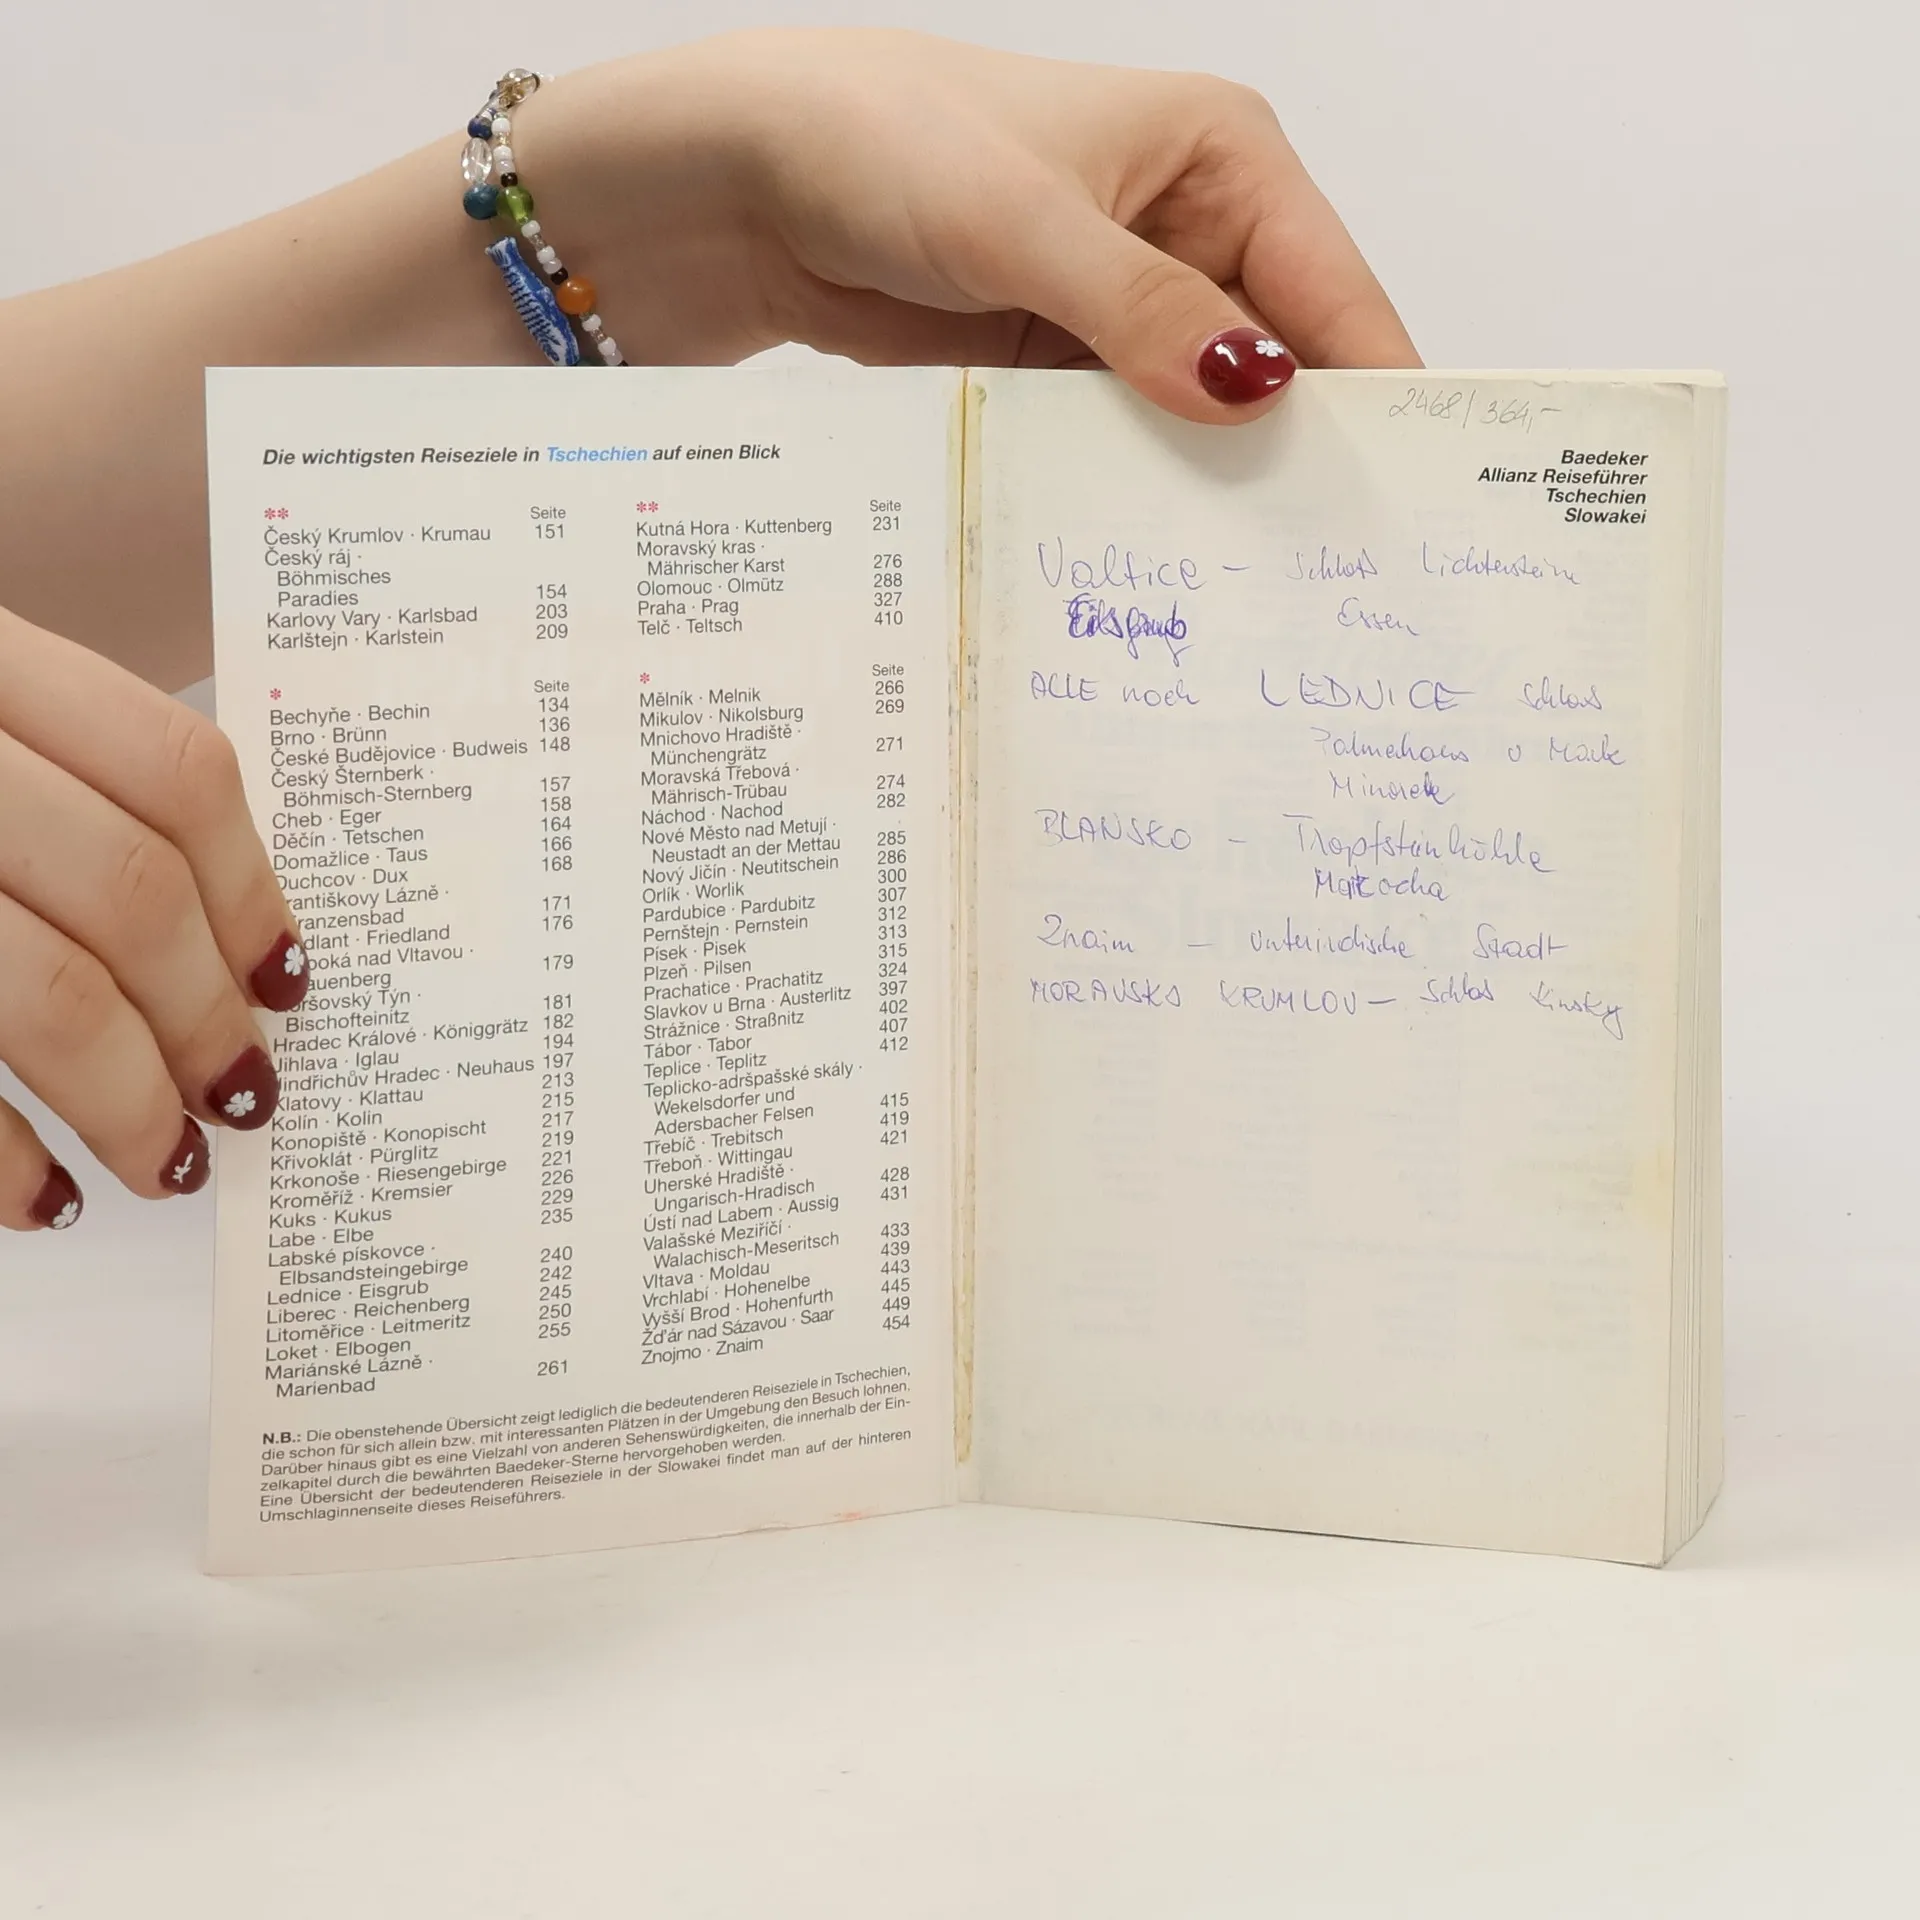 Die wichtigsten Reiseziele in Tschechien auf einen Blick
** Seite
Český Krumlov · Krumau 151
Český ráj ·
Böhmisches
Paradies 154
Karlovy Vary · Karlsbad 203
Karlštejn · Karlstein 209
** Seite
Kutná Hora · Kuttenberg 231
Moravský kras ·
Mährischer Karst 276
Olomouc · Olmütz 288
Praha · Prag 327
Telč · Teltsch 410
* Seite
Bechyňe · Bechin 134
Brno · Brünn 136
České Budějovice · Budweis 148
Český Šternberk ·
Böhmisch-Sternberg 157
Cheb · Eger 158
Děčín · Tetschen 164
Domažlice · Taus 166
Duchcov · Dux 168
rantiškovy Lázně ·
ranzensbad 171
dlant · Friedland 176
boká nad Vltavou ·
auenberg 179
oršovský Týn ·
Bischofteinitz 181
Hradec Králové · Königgrätz 182
Jihlava · Iglau 194
Jindřichův Hradec · Neuhaus 197
Klatovy · Klattau 213
Kolín · Kolin 215
Konopiště · Konopischt 217
Křivoklát · Pürglitz 219
Krkonoše · Riesengebirge 221
Kroměříž · Kremsier 226
Kuks · Kukus 229
Labe · Elbe 235
Labské pískovce ·
Elbsandsteingebirge 240
Lednice · Eisgrub 242
Liberec · Reichenberg 245
Litoměřice · Leitmeritz 250
Loket · Elbogen 255
Mariánské Lázně ·
Marienbad 261
* Seite
Mělník · Melnik 266
Mikulov · Nikolsburg 269
Mnichovo Hradiště ·
Münchengrätz 271
Moravská Třebová ·
Mährisch-Trübau 274
Náchod · Nachod 282
Nové Město nad Metují ·
Neustadt an der Mettau 285
Nový Jičín · Neutitschein 286
Orlík · Worlik 300
Pardubice · Pardubitz 307
Pernštejn · Pernstein 312
Písek · Pisek 313
Plzeň · Pilsen 315
Prachatice · Prachatitz 324
Slavkov u Brna · Austerlitz 397
Strážnice · Straßnitz 402
Tábor · Tabor 407
Teplice · Teplitz 412
Teplicko-adršpašské skály ·
Wekelsdorfer und
Adersbacher Felsen 415
Třebíč · Trebitsch 419
Třeboň · Wittingau 421
Uherské Hradiště ·
Ungarisch-Hradisch 428
Ústí nad Labem · Aussig 431
Valašské Meziříčí ·
Walachisch-Meseritsch 433
Vltava · Moldau 439
Vrchlabí · Hohenelbe 443
Vyšší Brod · Hohenfurth 445
Žďár nad Sázavou · Saar 449
Znojmo · Znaim 454
N.B.: Die obenstehende Übersicht zeigt lediglich die bedeutenderen Reiseziele in Tschechien,
die schon für sich allein bzw. mit interessanten Plätzen in der Umgebung den Besuch lohnen.
Darüber hinaus gibt es eine Vielzahl von anderen Sehenswürdigkeiten, die innerhalb der Ein-
zelkapitel durch die bewährten Baedeker-Sterne hervorgehoben werden.
Eine Übersicht der bedeutenderen Reiseziele in der Slowakei findet man auf der hinteren
Umschlaginnenseite dieses Reiseführers.
2468/364,-
Baedeker
Allianz Reiseführer
Tschechien
Slowakei
Valtice – Schloß Lichtensteine
Eisgrub Essen
ALLE noch LEDNICE Schloss
Palmehaus u
Minarek
BLANSKO – Tropfsteinhöhle
Macocha
Znaim – unterirdische Stadt
MORAVSKS KRUMLOV – Schloss Kinsky